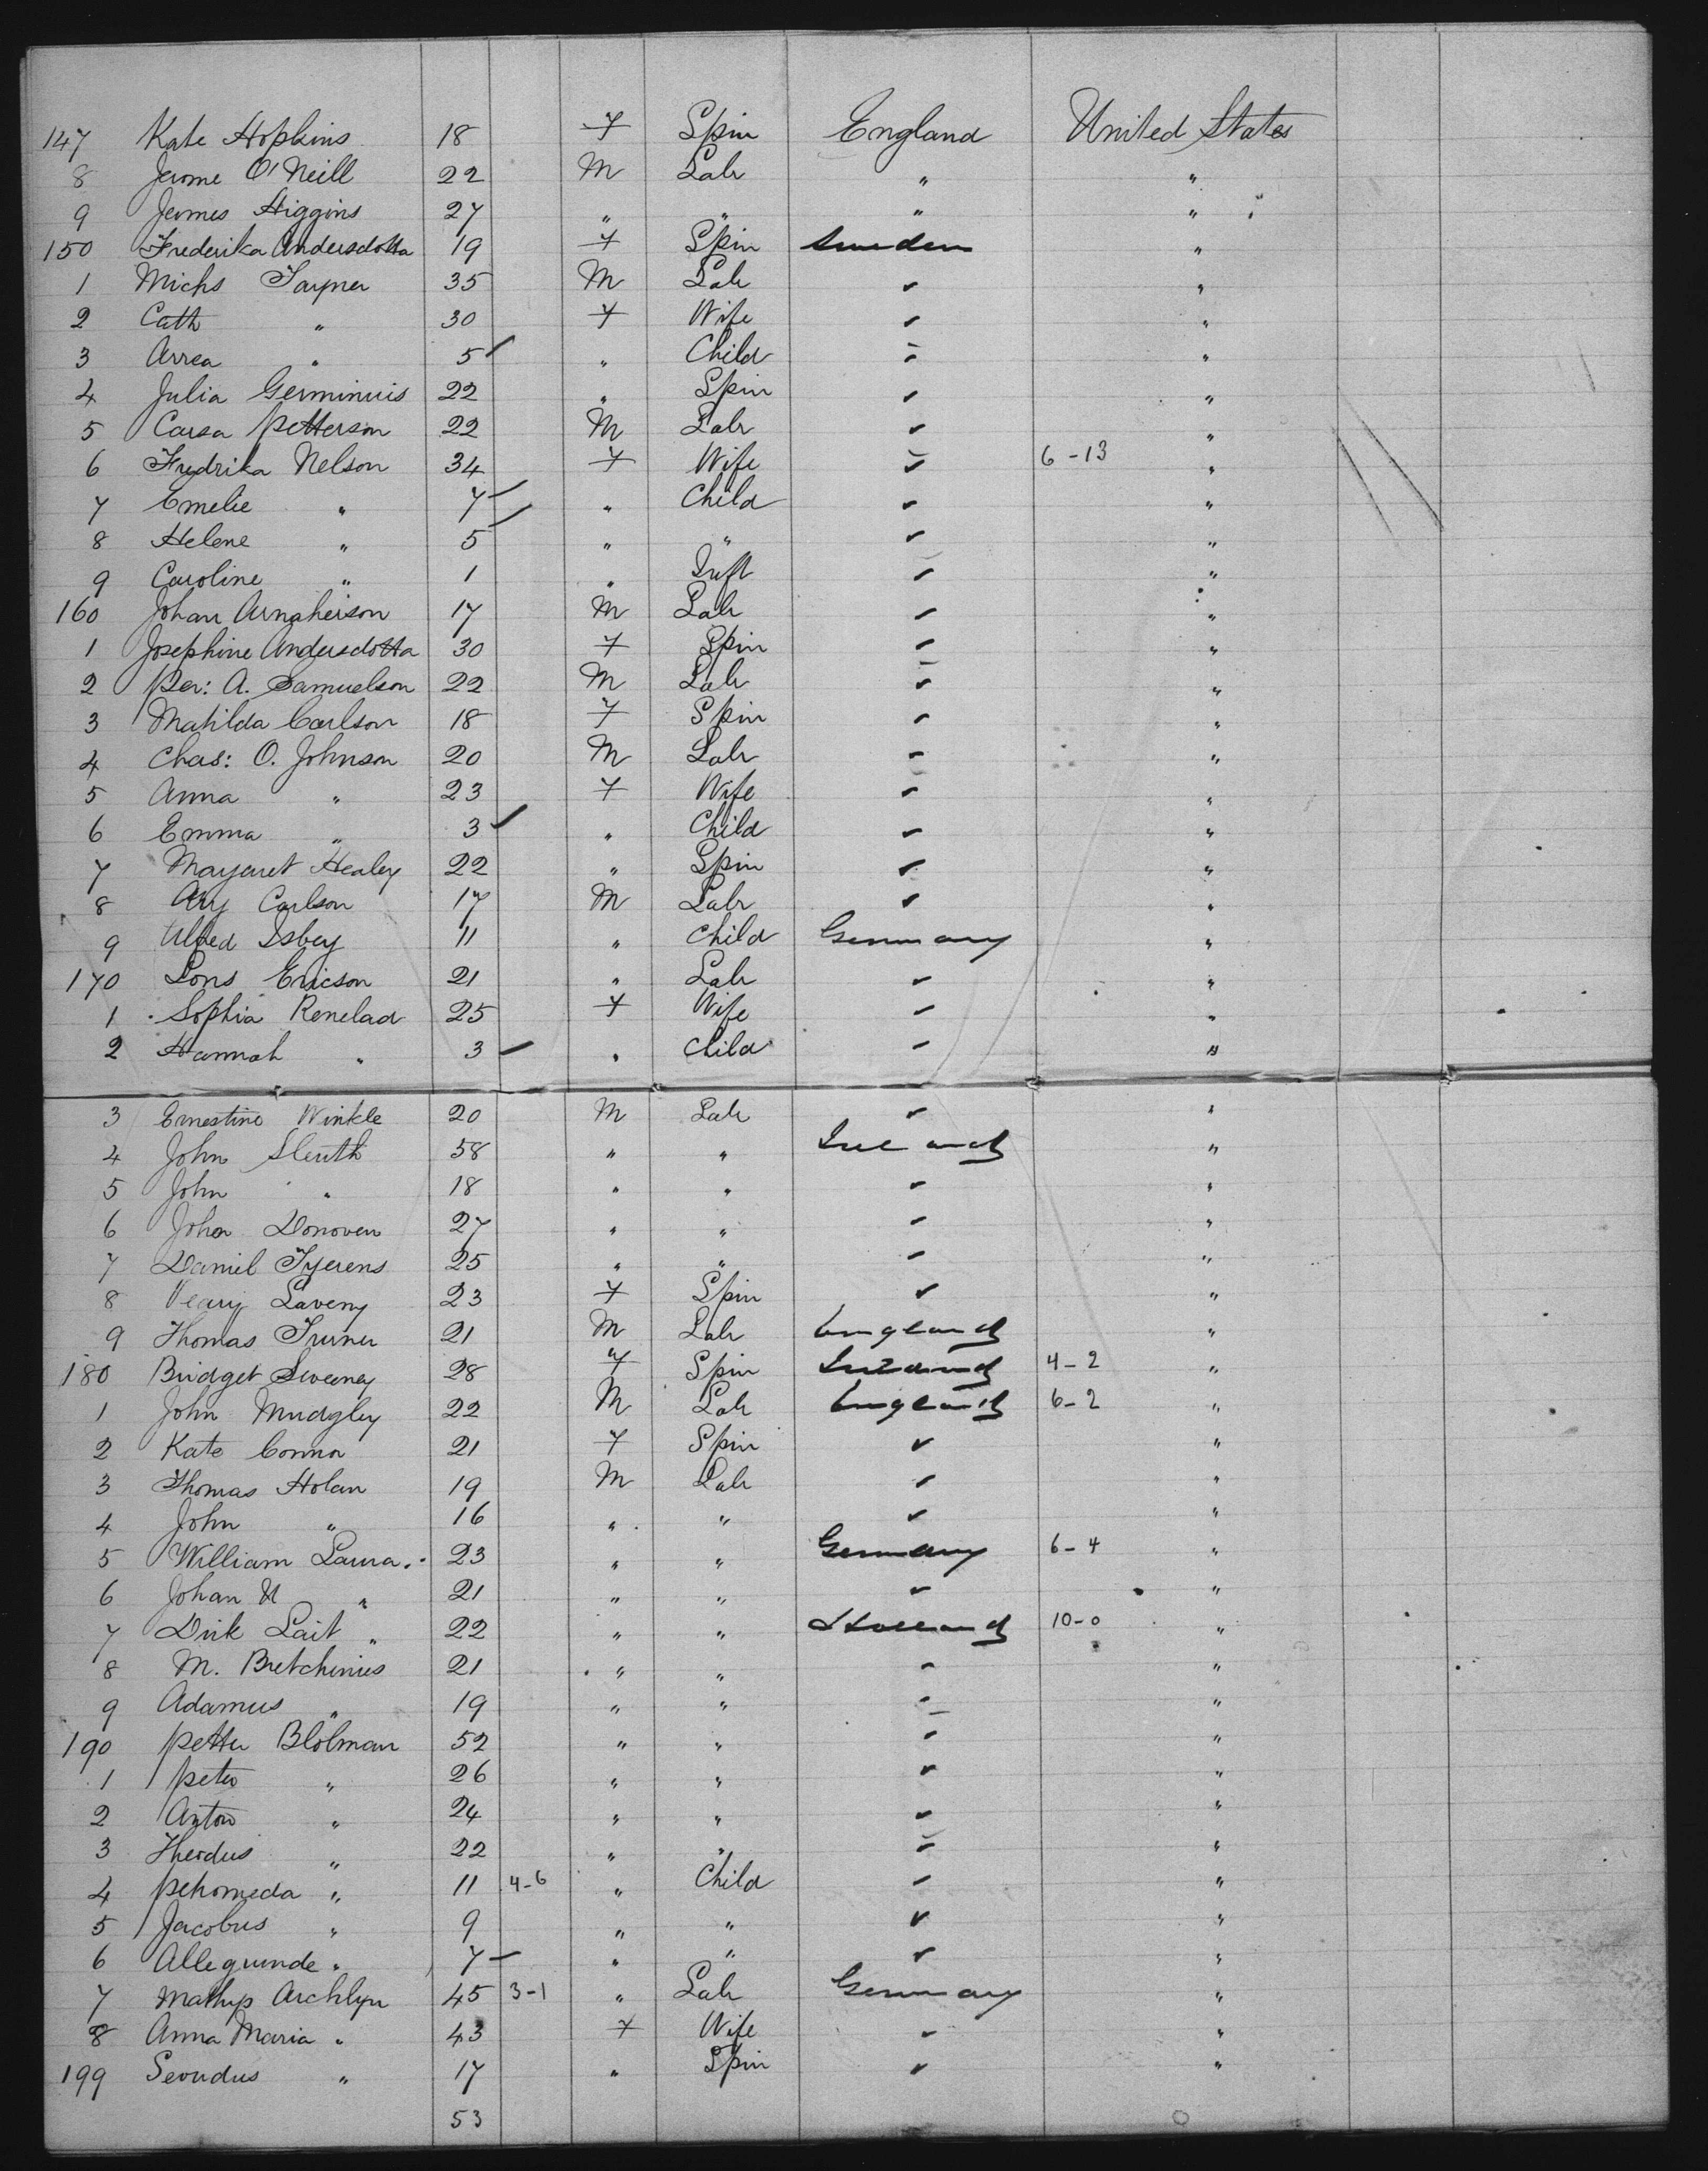 147 Kate Hopkins 18 F Spin England United States
8 Jerome O'Neill 22 M Labr " "
9 James Higgins 27 " " " "
150 Frederika Andersdotta 19 F Spin Sweden "
1 Michs 35 M Labr ✓ "
2 Cath " 30 F Wife ✓ "
3 Arrea " 5 " Child ✓ "
4 Julia Germinius 22 " Spin ✓ "
5 Carsa Petterson 22 M Labr ✓ "
6 Fredrika Nelson 34 F Wife ✓ 6-13 "
7 Emelie " 7 " Child ✓ "
8 Helene " 5 " " ✓ "
9 Caroline " 1 " Inft ✓ "
160 Johan 17 M Labr ✓ "
1 Josephine Andersdotta 30 F Spin ✓ "
2 Per: A. Samuelson 22 M Labr ✓ "
3 Mathilda Carlson 18 F Spin ✓ "
4 Chas: O. Johnson 20 M Labr ✓ "
5 Anna " 23 F Wife ✓ "
6 Emma " 3 " Child ✓ "
7 Margaret Healey 22 " Spin ✓ "
8 Carlson 17 M Labr ✓ "
9 Isbey 11 " Child Germany "
170 Lons Ericson 21 " Labr ✓ "
1 Sophia Renelad 25 F Wife ✓ "
2 Hannah " 3 " Child ✓ "
3 Ernestine Winkle 20 M Labr ✓ "
4 John Sleuth 58 " " Ireland "
5 John " 18 " " ✓ "
6 John Donoven 27 " " ✓ "
7 Daniel 25 " " ✓ "
8 Laveny 23 F Spin ✓ "
9 Thomas 21 M Labr England "
180 Bridget Sweeney 28 F Spin Ireland 4-2 "
1 John Mudgley 22 M Labr England 6-2 "
2 Kate Connor 21 F Spin ✓ "
3 Thomas Holan 19 M Labr ✓ "
4 John " 16 " " ✓ "
5 William Laura 23 " " Germany 6-4 "
6 Johan H " 21 " " ✓ "
7 Dirk Lait " 22 " " Holland 10-0 "
8 M. Bretchinius 21 " " ✓ "
9 Adamus " 19 " " ✓ "
190 Petter Blolman 52 " " ✓ "
1 Peter " 26 " " ✓ "
2 Anton " 24 " " ✓ "
3 Theodus " 22 " " ✓ "
4 " 11 4-6 " Child ✓ "
5 Jacobus " 9 " " ✓ "
6 Allegunde " 7 " " ✓ "
7 Mathys Archlyn 45 3-1 " Labr Germany "
8 Anna Maria " 43 F Wife ✓ "
199 " 17 " Spin ✓ "
53